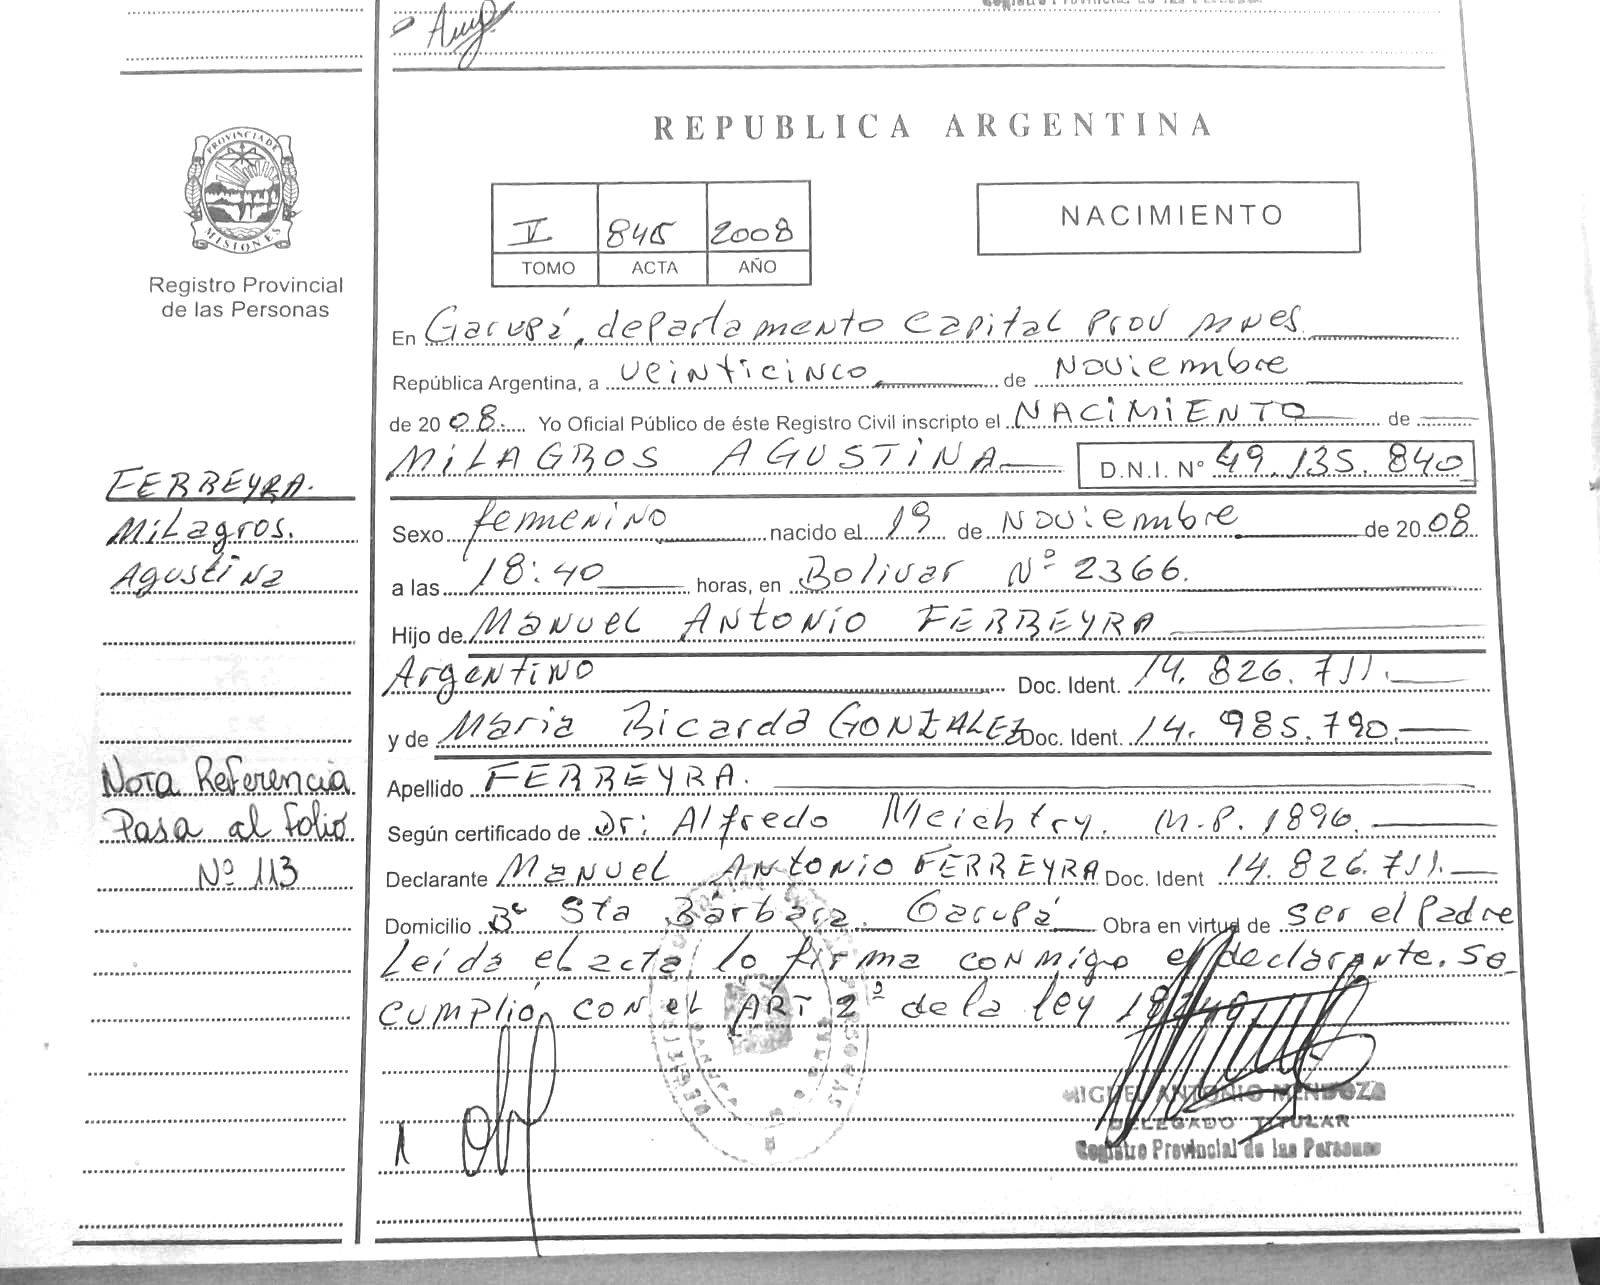 REPUBLICA ARGENTINA
PROVINCIA DE
MISIONES
Registro Provincial
de las Personas
II 845 2008
TOMO ACTA AÑO
NACIMIENTO
En Garupá, departamento Capital Prov Mnes
República Argentina, a veinticinco de Noviembre
de 2008. Yo Oficial Público de éste Registro Civil inscripto el NACIMIENTO de
MILAGROS AGUSTINA D.N.I. N° 49.135.840
FERREYRA.
Milagros.
Agustina
Sexo femenino nacido el 19 de Noviembre de 2008
a las 18:40 horas, en Bolivar Nº 2366.
Hijo de Manuel Antonio FERREYRA
Argentino Doc. Ident. 14.826.711.
y de Maria Ricarda GONZALEZ Doc. Ident. 14.985.790.
Nota Referencia
Pasa al Folio
Nº 113
Apellido FERREYRA.
Según certificado de Dr: Alfredo Meichtry. M.P. 1896.
Declarante Manuel Antonio FERREYRA Doc. Ident 14.826.711.
Domicilio Bº Sta Bárbara. Garupá Obra en virtud de ser el Padre
Leída el acta lo firma conmigo el declarante. Se
cumplió con el ART 2º de la ley
MIGUEL ANTONIO MENDOZA
DELEGADO TITULAR
Registro Provincial de las Personas